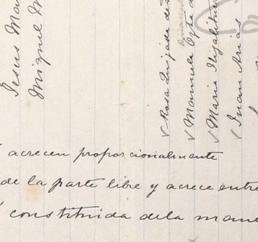 Jesus Ma
Miguel M
√ Rosa Quijada de
√ Manuela
√ Maria
√ Juan Arias
acrecen proporcionalmente
de la parte libre y acrece entre
constituida de la mane